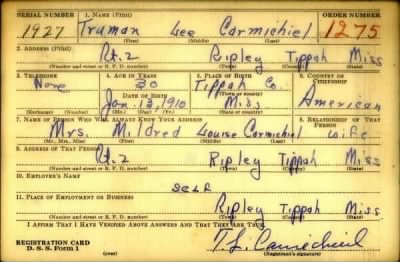 SERIAL NUMBER 1. NAME (Print) ORDER NUMBER
1927 Truman Lee Carmichiel 1275
(First) (Middle) (Last)
2. ADDRESS (Print)
Rt. 2 Ripley Tippah Miss
(Number and street or R. F. D. number) (Town) (County) (State)
3. TELEPHONE 4. AGE IN YEARS 5. PLACE OF BIRTH 6. COUNTRY OF CITIZENSHIP
None 30 Tippah Co.
DATE OF BIRTH (Town or county)
Jan 13, 1910 Miss American
(Exchange) (Number) (Mo.) (Day) (Yr.) (State or country)
7. NAME OF PERSON WHO WILL ALWAYS KNOW YOUR ADDRESS 8. RELATIONSHIP OF THAT PERSON
Mrs. Mildred Louise Carmichiel wife
(Mr., Mrs., Miss) (First) (Middle) (Last)
9. ADDRESS OF THAT PERSON
Rt. 2 Ripley Tippah Miss
(Number and street or R. F. D. number) (Town) (County) (State)
10. EMPLOYER'S NAME
Self
11. PLACE OF EMPLOYMENT OR BUSINESS
Ripley Tippah Miss
(Number and street or R. F. D. number) (Town) (County) (State)
I AFFIRM THAT I HAVE VERIFIED ABOVE ANSWERS AND THAT THEY ARE TRUE.
REGISTRATION CARD
D. S. S. Form 1 (over) T. L. Carmichiel
(Registrant's signature)